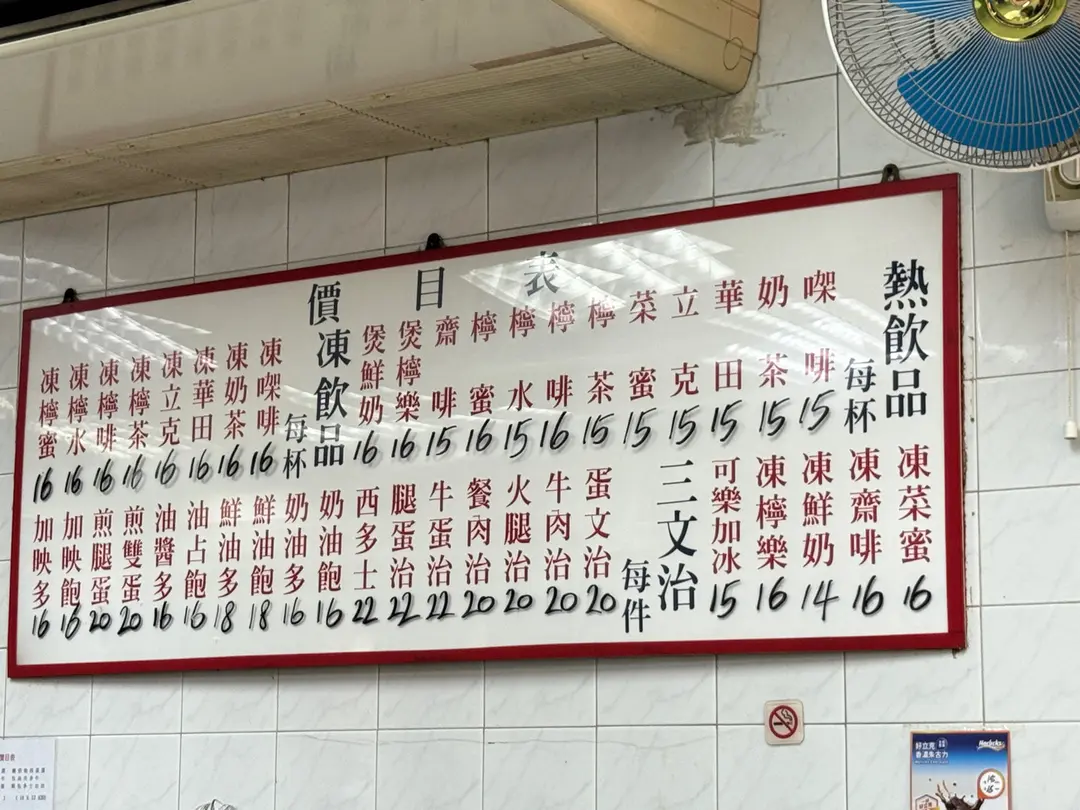 價目表
熱飲品 每杯
㗎啡 15
奶茶 15
華田 15
立克 15
菜蜜 15
檸茶 15
檸啡 16
檸水 15
檸蜜 16
齋啡 15
煲檸樂 16
煲鮮奶 16
凍飲品 每杯
凍㗎啡 16
凍奶茶 16
凍華田 16
凍立克 16
凍檸茶 16
凍檸啡 16
凍檸水 16
凍檸蜜 16
凍菜蜜 16
凍齋啡 16
凍鮮奶 14
凍檸樂 16
可樂加冰 15
三文治 每件
蛋文治 20
牛肉治 20
火腿治 20
餐肉治 20
牛蛋治 22
腿蛋治 22
西多士 22
奶油飽 16
奶油多 16
鮮油飽 18
鮮油多 18
油占飽 16
油醬多 16
煎雙蛋 20
煎腿蛋 20
加映飽 16
加映多 16
好立克
香濃朱古力
Horlicks